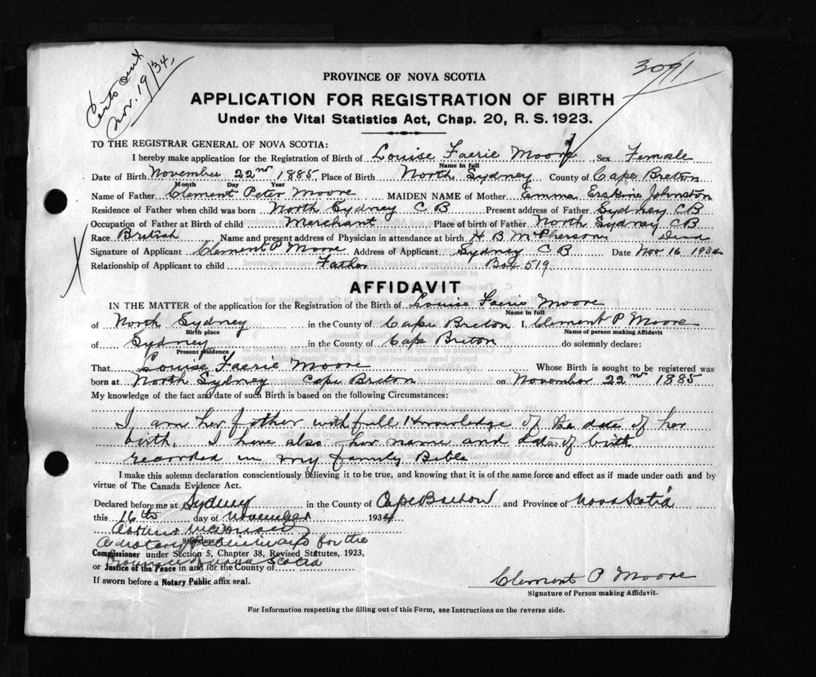 Certs sent
Nov. 19/34,
3091
PROVINCE OF NOVA SCOTIA
APPLICATION FOR REGISTRATION OF BIRTH
Under the Vital Statistics Act, Chap. 20, R. S. 1923.
TO THE REGISTRAR GENERAL OF NOVA SCOTIA:
I hereby make application for the Registration of Birth of Louise Faerie Moore Sex Female
Name in full
Date of Birth November 22nd 1885 Place of Birth North Sydney County of Cape Breton
Month Day Year
Name of Father Clement Peter Moore MAIDEN NAME of Mother Emma Erskine Johnston
Residence of Father when child was born North Sydney C B Present address of Father Sydney C B
Occupation of Father at Birth of child Merchant Place of birth of Father North Sydney C B
Race British Name and present address of Physician in attendance at birth H B McPherson
Signature of Applicant Clement P Moore Address of Applicant Sydney C B Date Nov 16 1934
Relationship of Applicant to child Father Box 519
AFFIDAVIT
IN THE MATTER of the application for the Registration of the Birth of Louise Faerie Moore
Name in full
of North Sydney in the County of Cape Breton I, Clement P Moore
Birth place Name of person making Affidavit
of Sydney in the County of Cap Breton do solemnly declare:
Present residence
That Louise Faerie Moore Whose Birth is sought to be registered was
born at North Sydney Cape Breton on November 22nd 1885
My knowledge of the fact and date of such Birth is based on the following Circumstances:
I am her father with full Knowledge of the date of her
birth. I have also her name and date of birth
recorded in my family Bible
I make this solemn declaration conscientiously believing it to be true, and knowing that it is of the same force and effect as if made under oath and by
virtue of The Canada Evidence Act.
Declared before me at Sydney in the County of Cape Breton and Province of Nova Scotia
this 16th day of November 1934
A Notary Public in and for the
Commissioner under Section 5, Chapter 38, Revised Statutes, 1923,
Province of Nova Scotia
or Justice of the Peace in and for the County of
If sworn before a Notary Public affix seal.
Clement P Moore
Signature of Person making Affidavit.
For Information respecting the filling out of this Form, see Instructions on the reverse side.